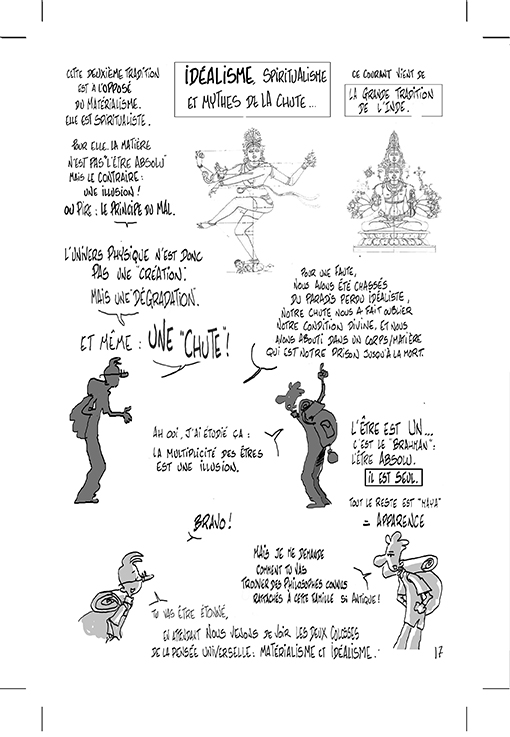 CETTE DEUXIÈME TRADITION
EST À L'OPPOSÉ
DU MATÉRIALISME.
ELLE EST SPIRITUALISTE.
POUR ELLE, LA MATIÈRE
N'EST PAS "L'ÊTRE ABSOLU"
MAIS LE CONTRAIRE :
UNE ILLUSION !
OU PIRE : LE PRINCIPE DU MAL.
IDÉALISME, SPIRITUALISME
ET MYTHES DE LA CHUTE...
CE COURANT VIENT DE
LA GRANDE TRADITION
DE L'INDE.
L'UNIVERS PHYSIQUE N'EST DONC
PAS UNE "CRÉATION",
MAIS UNE "DÉGRADATION".
ET MÊME : UNE "CHUTE" !
POUR UNE FAUTE,
NOUS AVONS ÉTÉ CHASSÉS
DU PARADIS PERDU IDÉALISTE,
NOTRE CHUTE NOUS A FAIT OUBLIER
NOTRE CONDITION DIVINE, ET NOUS
AVONS ABOUTI DANS UN CORPS/MATIÈRE
QUI EST NOTRE PRISON JUSQU'À LA MORT.
AH OUI, J'AI ÉTUDIÉ ÇA :
LA MULTIPLICITÉ DES ÊTRES
EST UNE ILLUSION.
L'ÊTRE EST UN...
C'EST LE "BRAHMAN" :
L'ÊTRE ABSOLU.
IL EST SEUL.
TOUT LE RESTE EST "MAYA"
= APPARENCE
BRAVO !
MAIS JE ME DEMANDE
COMMENT TU VAS
TROUVER DES PHILOSOPHES CONNUS
RATTACHÉS À CETTE FAMILLE SI ANTIQUE !
TU VAS ÊTRE ÉTONNÉ,
EN ATTENDANT NOUS VENONS DE VOIR LES DEUX COLOSSES
DE LA PENSÉE UNIVERSELLE : MATÉRIALISME ET IDÉALISME.
17